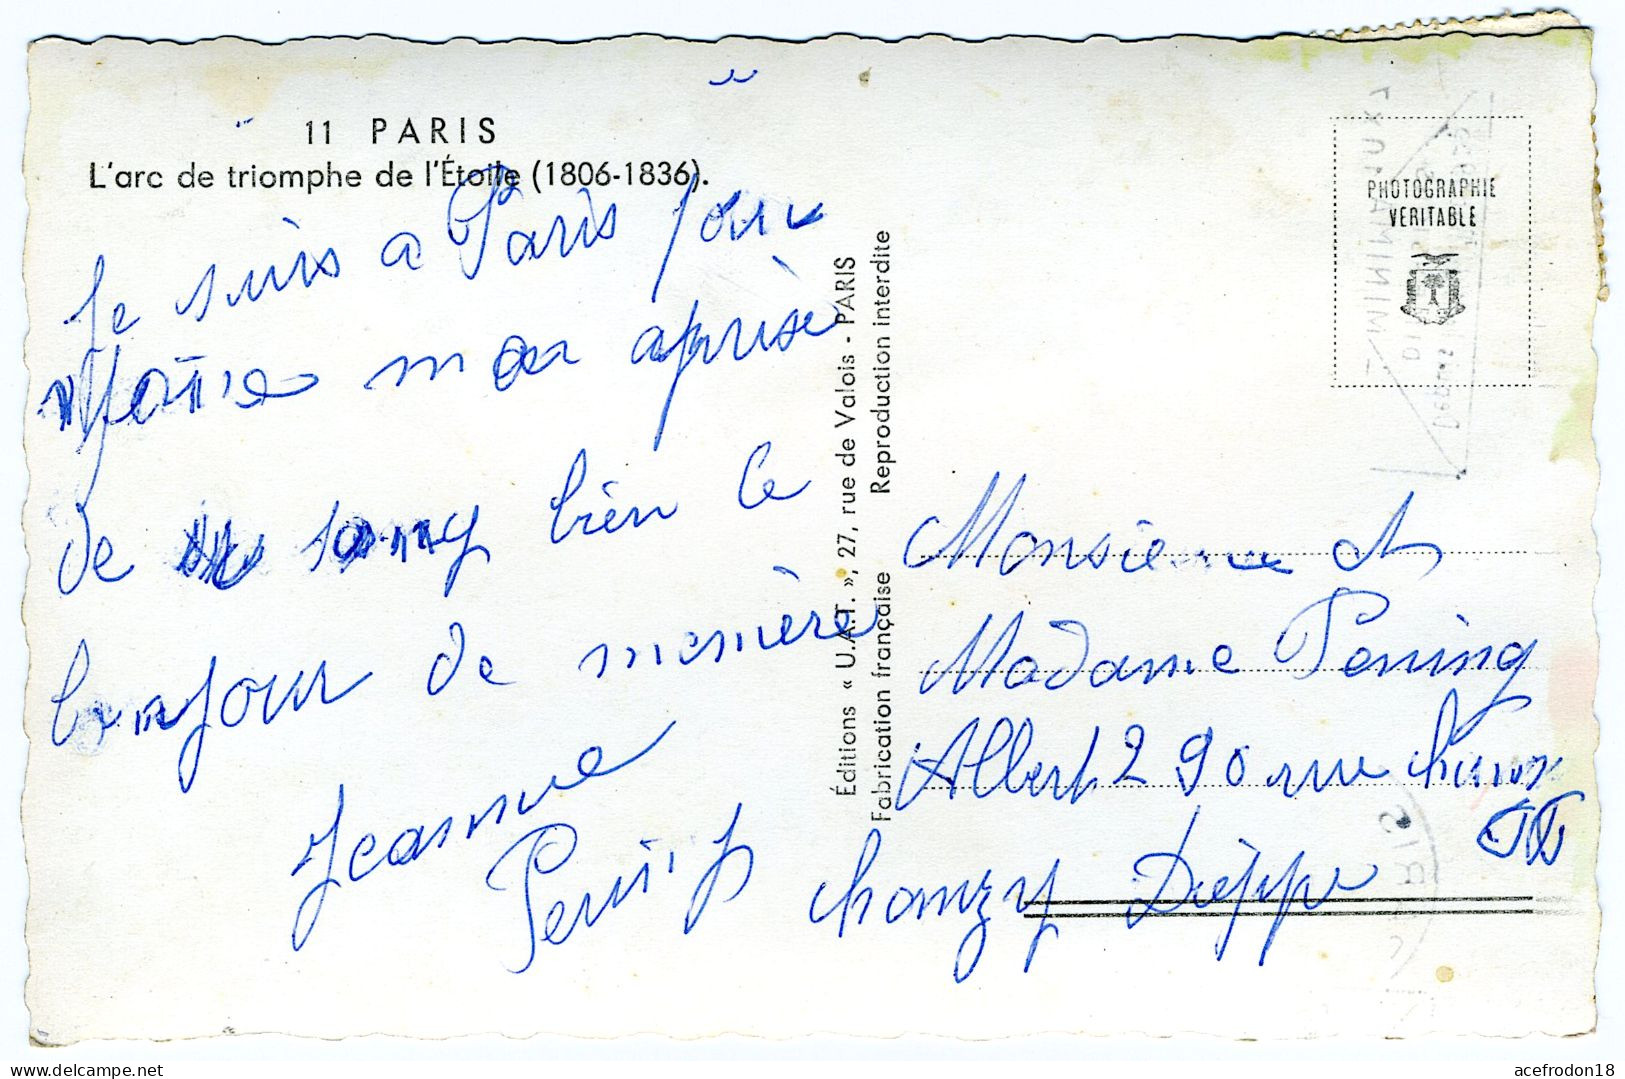 11 PARIS
L'arc de triomphe de l'Étoile (1806-1836).
Je suis a Paris pour
mon aprise
de song bien le
bonjour de
Jeanne
Éditions « U.A.T. », 27, rue de Valois - PARIS
Fabrication française Reproduction interdite
PHOTOGRAPHIE
VERITABLE
Monsieur et
Madame Pening
Albert 290 rue
chanzy Dieppe
acefrodon18